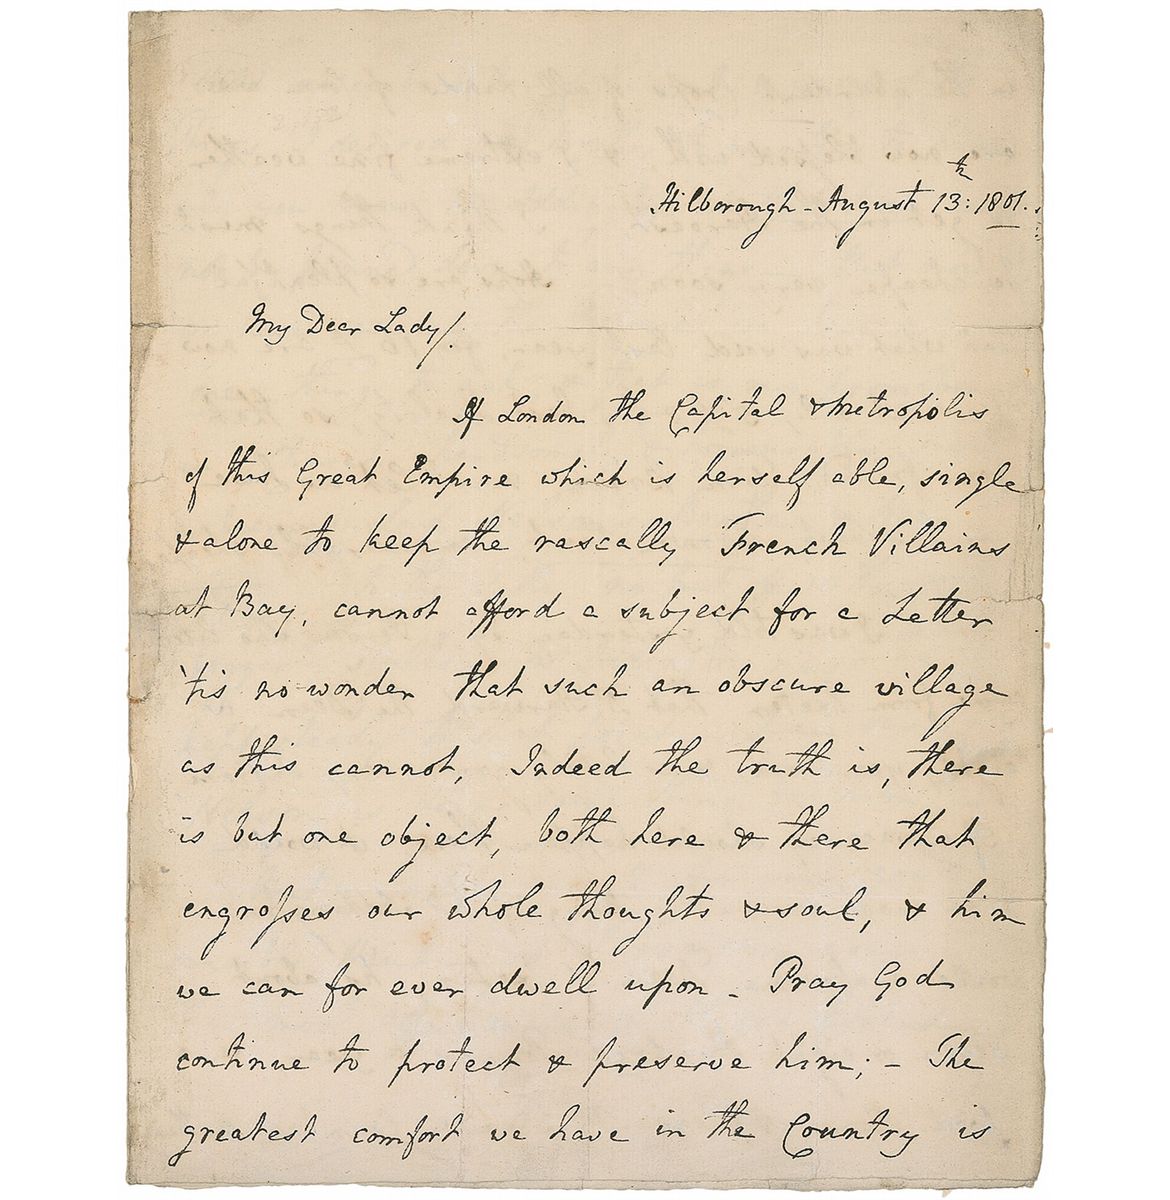 Hilborough - August 13th: 1801.
My Dear Lady/.
If London the Capital & Metropolis
of this Great Empire which is herself able, single
& alone to keep the rascally French Villains
at Bay, cannot afford a subject for a Letter
'tis no wonder that such an obscure village
as this cannot, Indeed the truth is, there
is but one object, both here & there that
engroſses our whole thoughts & soul, & him
we can for ever dwell upon - Pray God
continue to protect & preserve him; - The
greatest comfort we have in the Country is